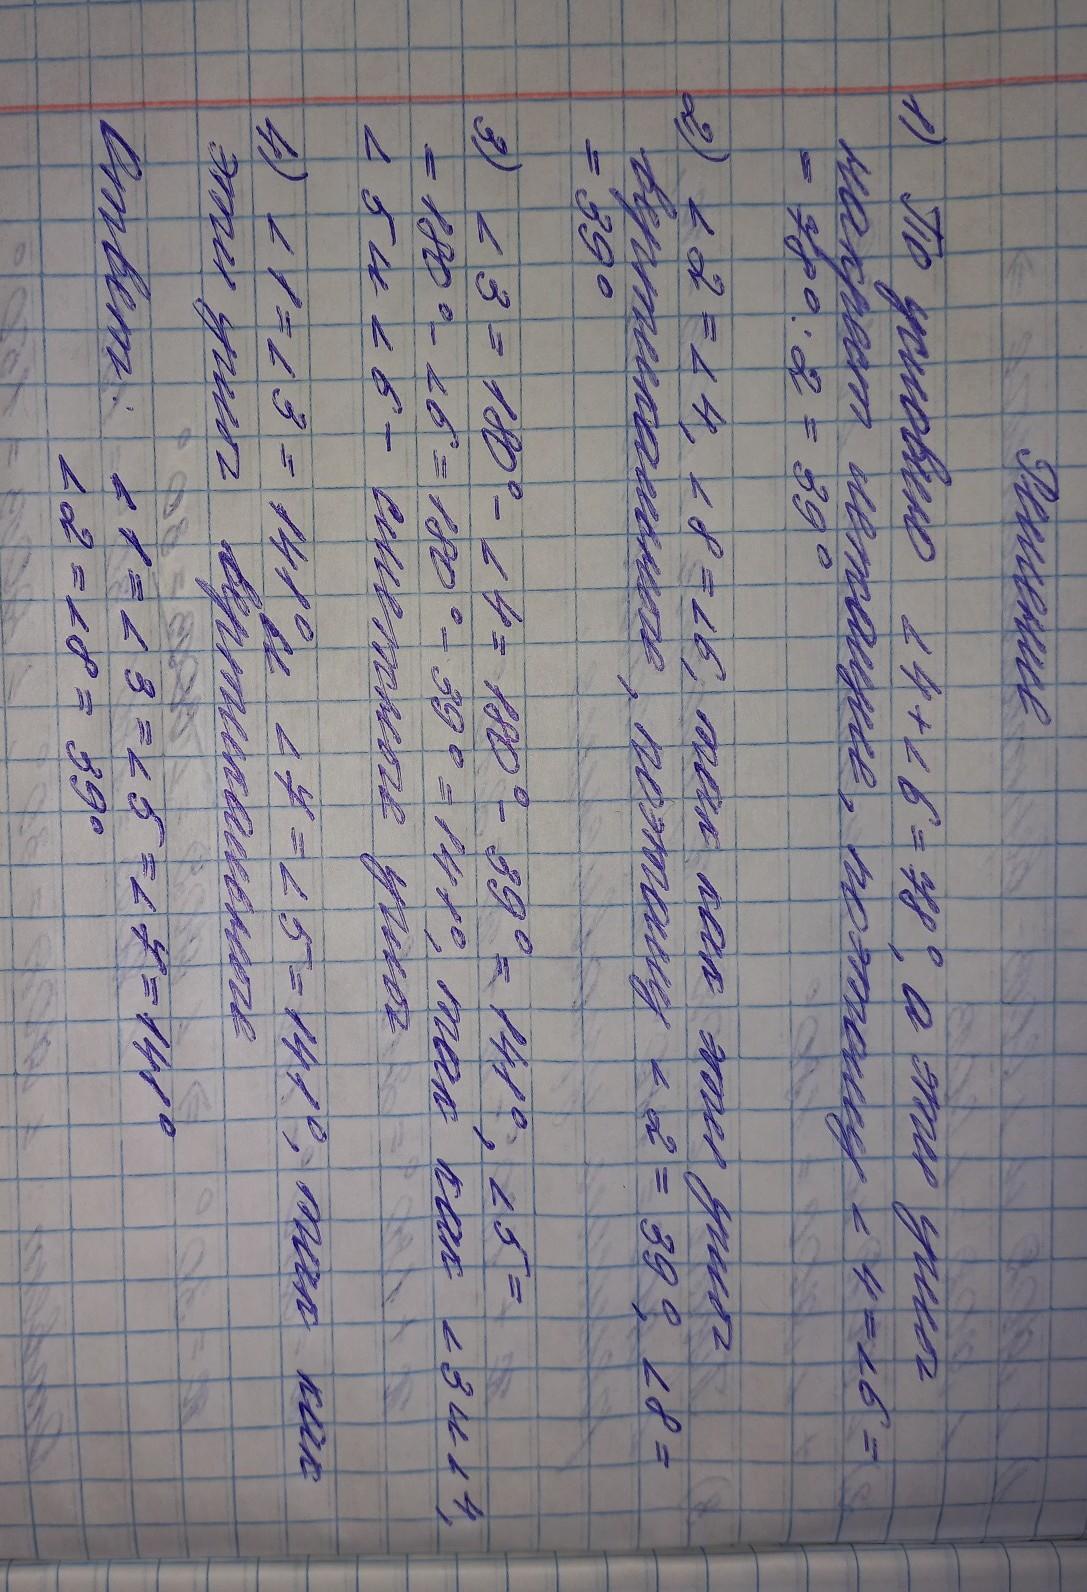 Решение
1) По условию ∠4+∠6=78°, а эти углы
накрест лежащие, поэтому ∠4=∠6=
=78°:2=39°
2) ∠2=∠4, ∠8=∠6, так как эти углы
вертикальные, поэтому ∠2=39°, ∠8=
=39°
3) ∠3=180°-∠4=180°-39°=141°, ∠5=
=180°-∠6=180°-39°=141°, так как ∠3 и ∠4,
∠5 и ∠6 - смежные углы
4) ∠1=∠3=141° и ∠7=∠5=141°, так как
эти углы вертикальные
Ответ: ∠1=∠3=∠5=∠7=141°
∠2=∠8=39°